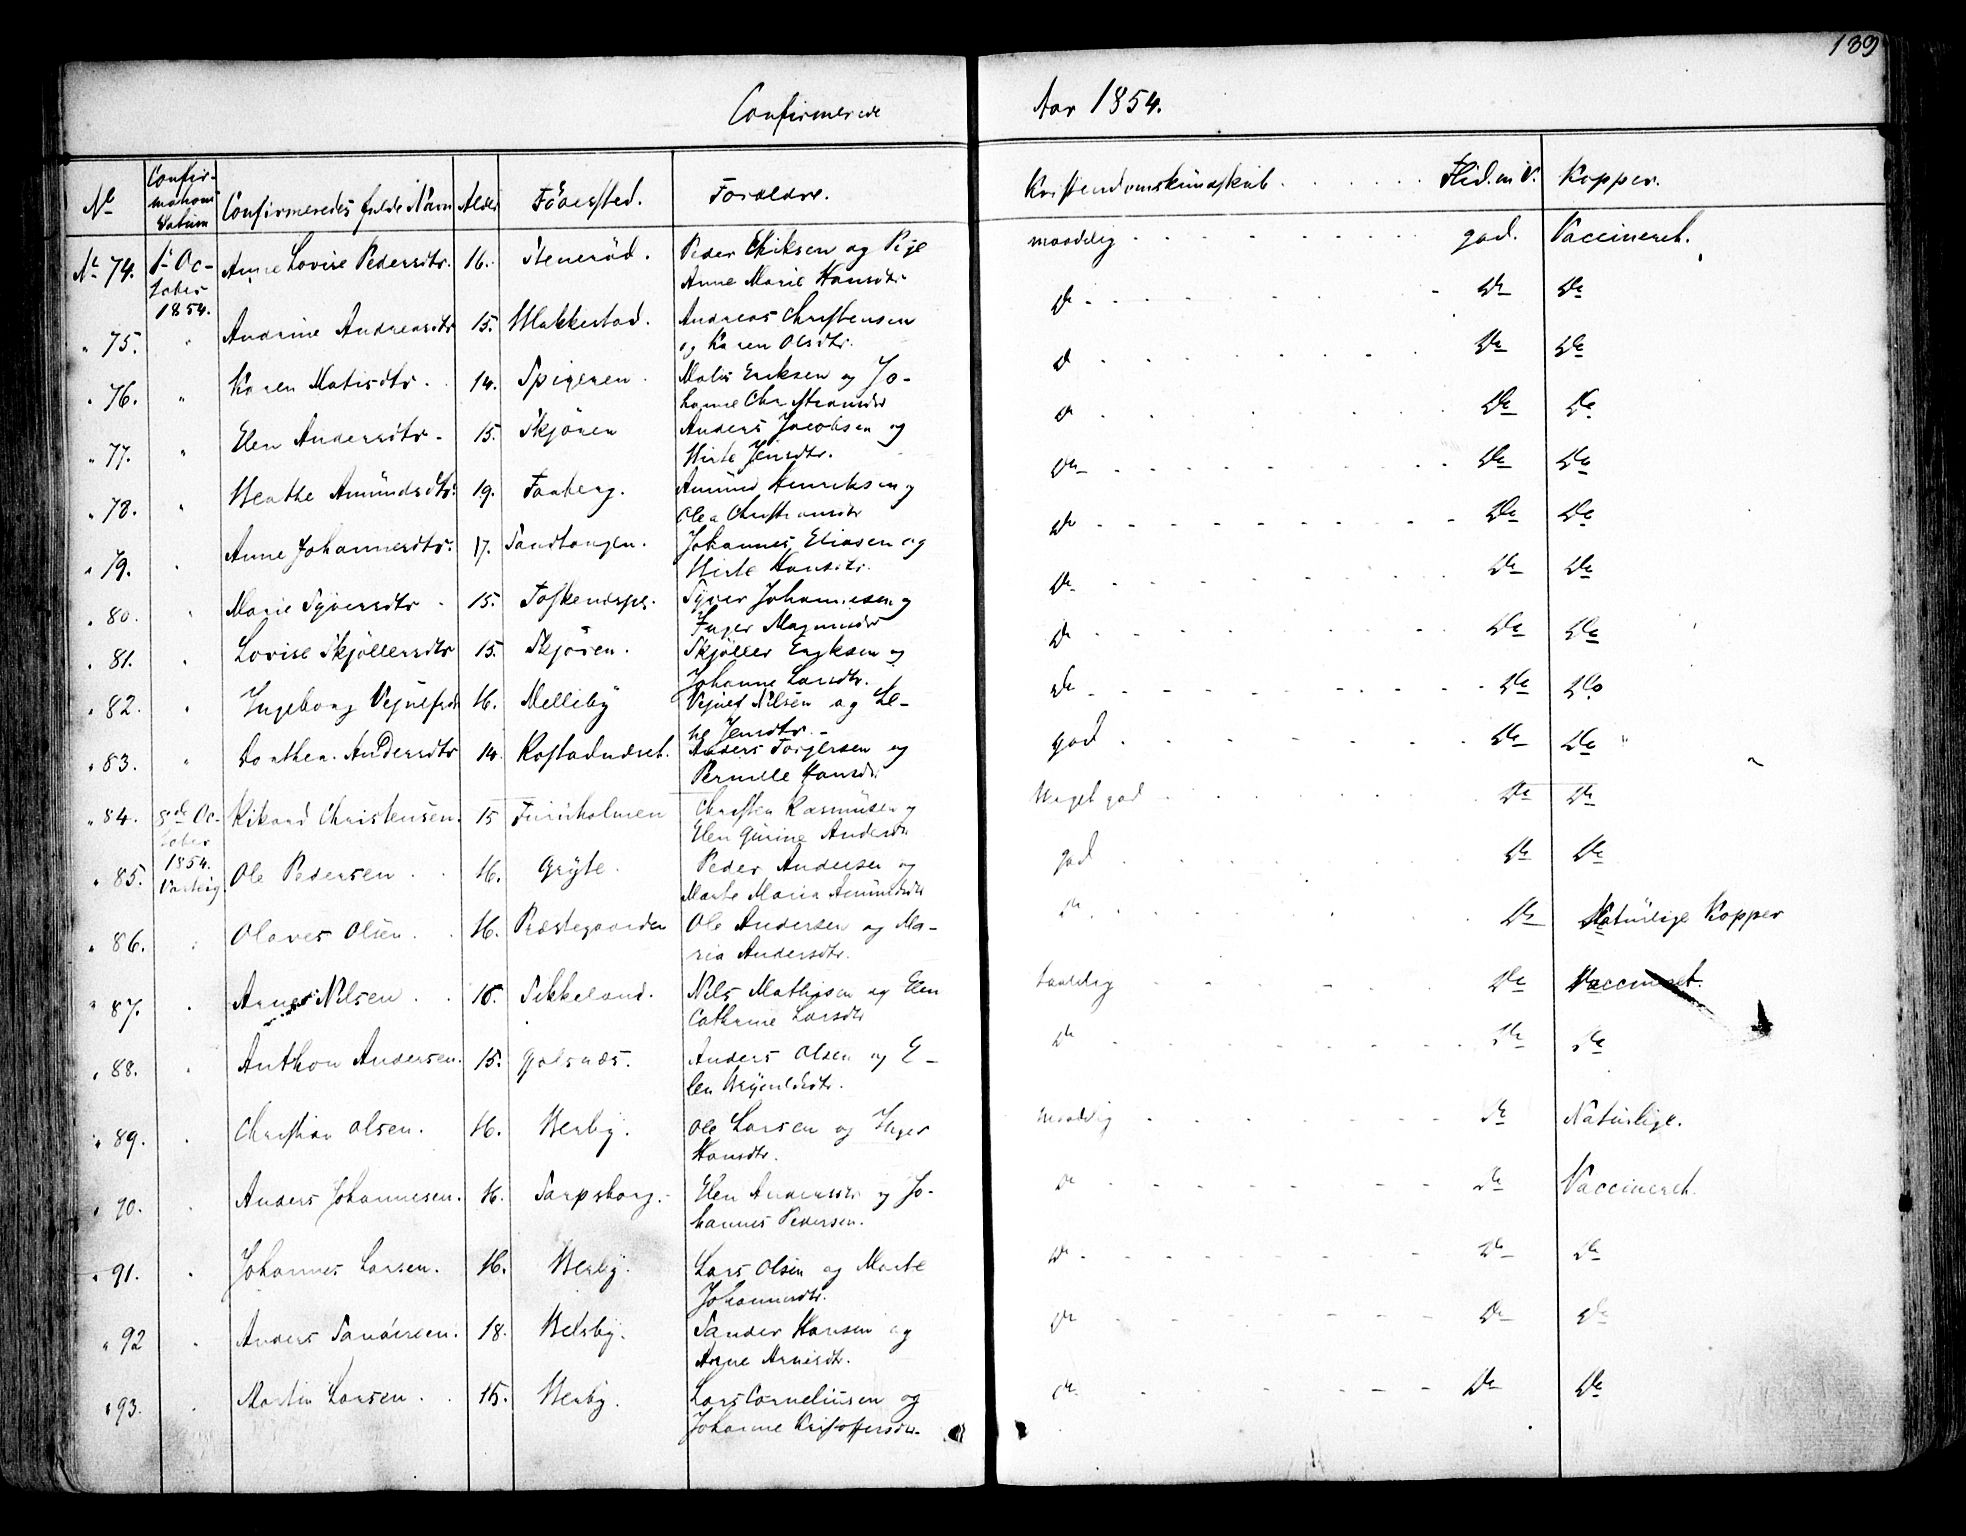 139
Confirmerede Aar 1854.
No Confirmations Datum Confirmeredes fulde Navn Alder Fødested. Forældre. Kristendomskundskab . . . . . . Flid. m. V. Kopper.
No 74. 1ste October 1854. Anne Lovise Pedersdtr. 16. Stenerød. Peder Eriksen og Pige
Anne Marie Hansdtr maadelig god. Vaccineret.
" 75. " Andrine Andreasdtr 15. Hakkestad. Andreas Christensen
og Karen Olsdtr. Do Do Do
" 76. " Karen Matisdtr. 14. Spigeren. Matis Eriksen og Jo-
hanne Christiansdtr Do Do Do
" 77. " Elen Andersdtr. 15. Skjøren Anders Jacobsen og
Jensdtr. Do Do Do
" 78. " Amundsdtr. 19. Faaberg. Amund Henriksen og
Olea Christiansdtr Do Do Do
" 79. " Anne Johannesdtr. 17. Sandtangen. Johannes Eliasen og
Hansdtr. Do Do Do
" 80. " Marie Syversdtr 15. Syver Johannesen og
Inger Magnusdtr Do Do Do
" 81. " Lovise Skjøllersdtr 15. Skjøren. Skjøller Eriksen og
Johanne Larsdtr. Do Do Do
" 82. " Ingeborg 16. Melleby Nilsen og Le-
ne Jensdtr. Do Do Do
" 83. " Dorthea Andersdtr 14. Anders Torgersen og
Pernille Hansdtr god Do Do
" 84. 8de October 1854. Varteig Rikard Christensen. 15 Furuholmen Christen Rasmusen og
Elen Gurine Andersdtr Meget god Do Do
" 85. Ole Pedersen 16. Gryte. Peder Andersen og
Marte Maria Amundsdtr god Do Do
" 86. " Olaves Olsen. 16. Præstegaarden Ole Andersen og Ma-
ria Andersdtr. Do Do Naturlige Kopper
" 87. " Nilsen 16. Sikkeland. Nils Mathisen og Elen
Cathrine Larsdtr Do Vaccineret.
" 88. " Anthon Andersen. 15. Anders Olsen og E-
len Do Do Do
" 89. " Christian Olsen. 16. Ole Larsen og Inger
Hansdtr. maadelig Do Naturlige.
" 90. " Anders Johannesen. 16. Sarpsborg. Elen Andersdtr og Jo-
hannes Pedersen. Do Do Vaccineret.
" 91. " Johannes Larsen. 16. Lars Olsen og Marte
Johannesdtr. Do Do Do
" 92 " Anders Sandersen. 18. Sander Hansen og
Anne Arnesdtr. Do Do Do
" 93. " Martin Larsen. 15. Lars Corneliusen og
Johanne Kristoffersdtr. Do Do Do